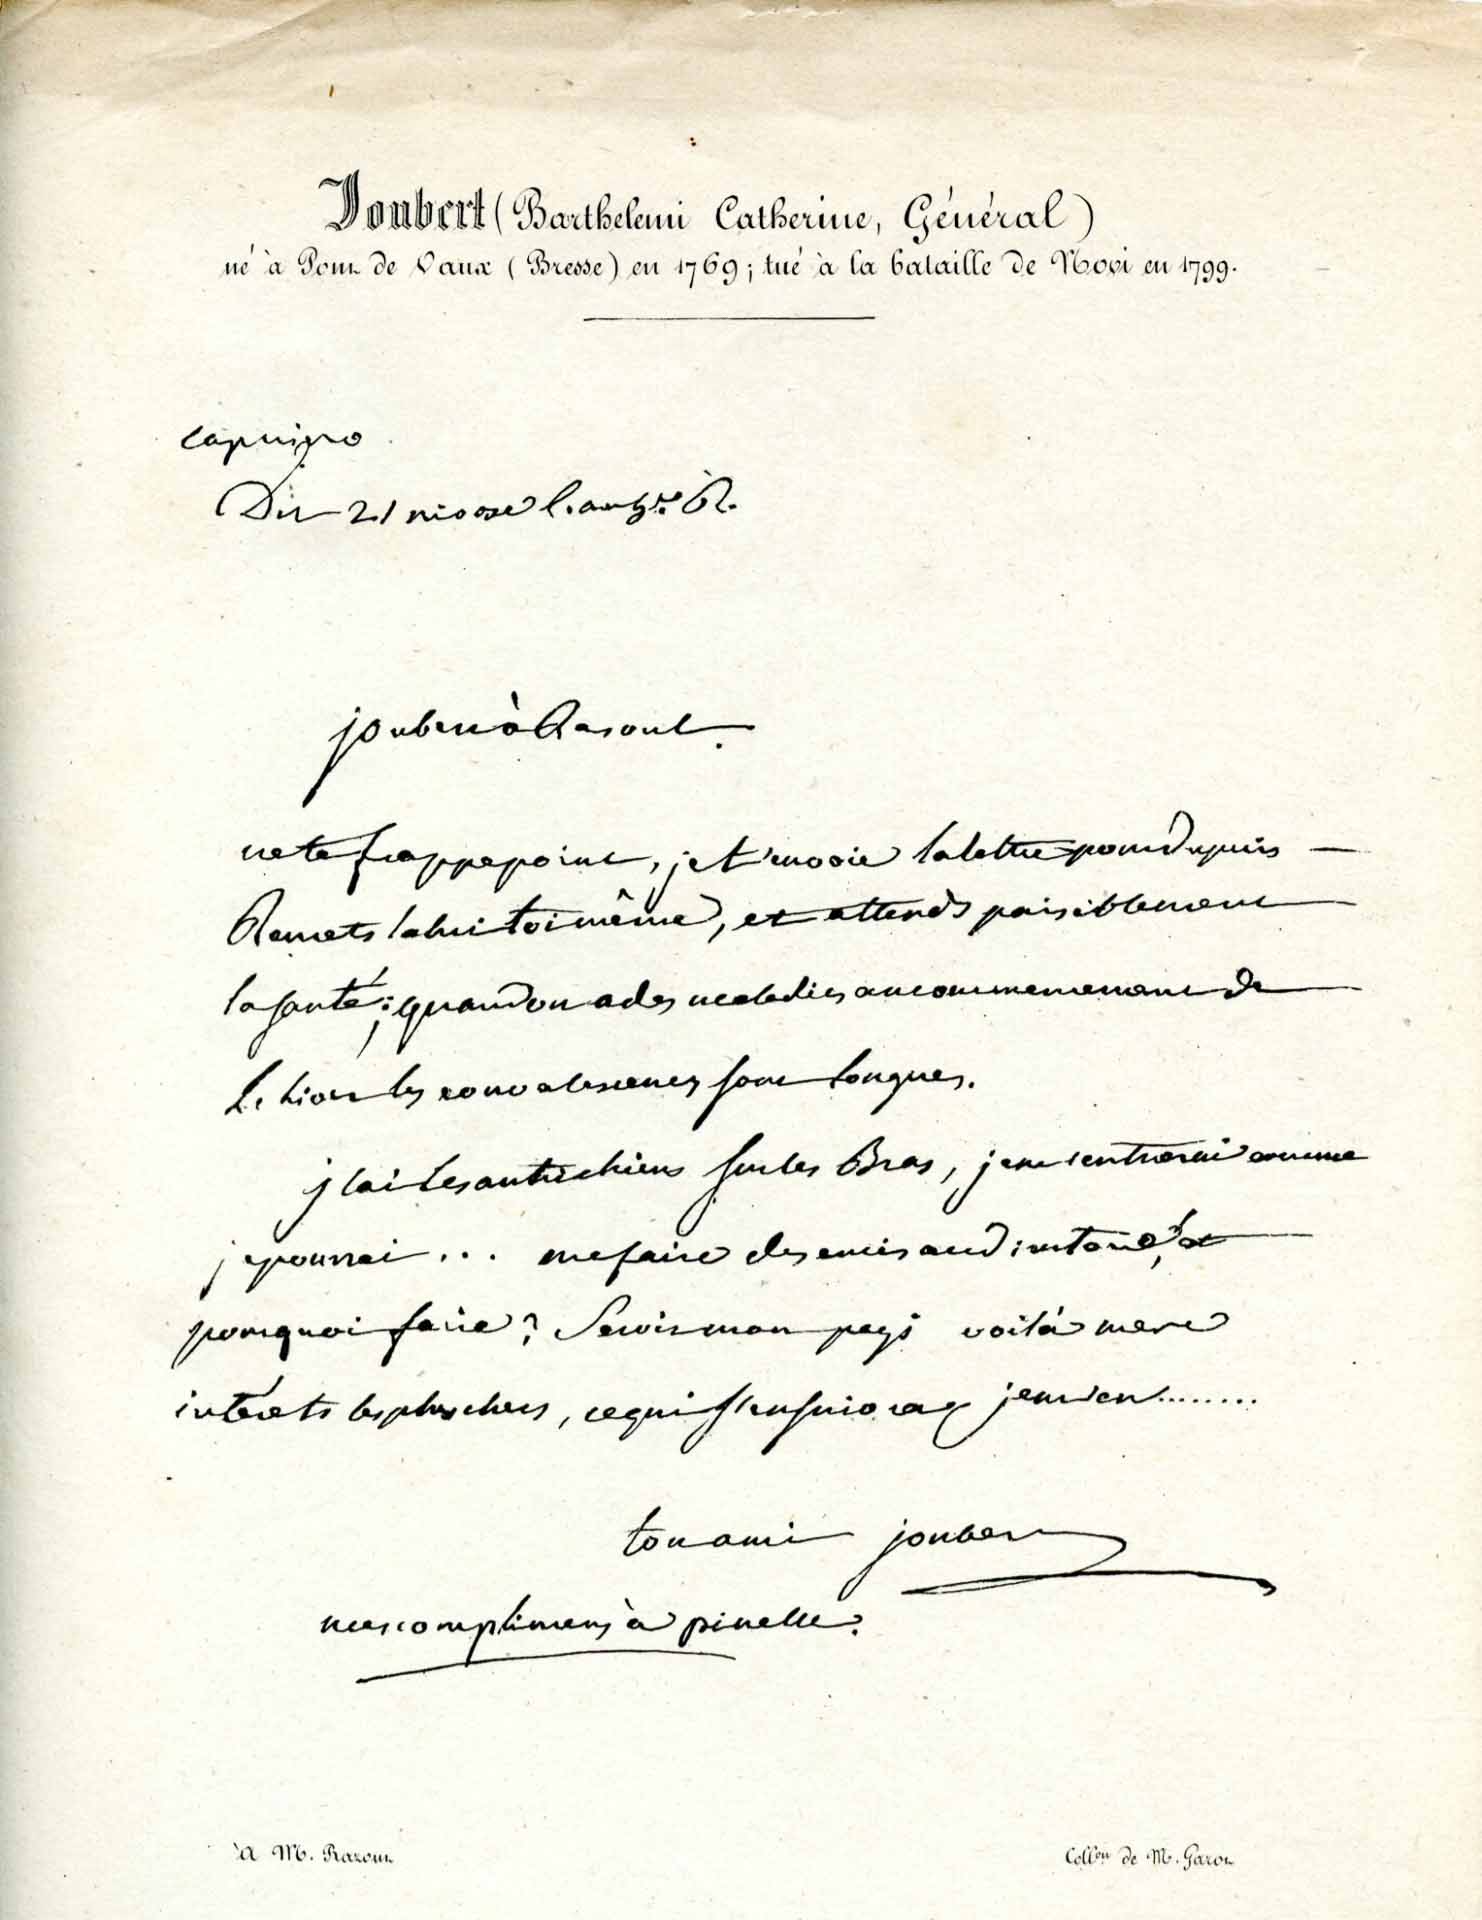 Joubert (Barthelemi Catherine, Général)
né à Pont de Vaux (Bresse) en 1769; tué à la bataille de Novi en 1799.
Du 21 nivose l. an 5.e R.
joubert à Rasout.
ne te frappe point, je t'envoie la lettre pour dupuis
Remets la lui toi même, et attends paisiblement
la santé; quand on a des maladies au commencement de
L. hiver les convalescences sont longues.
j'ai les autrichiens sur les Bras, je me tourne
je pourrai ... me faire des amis au directoire, et
pourquoi faire? Servir mon pays voilà mes
intérêts les plus chers, ce qui s'ensuivra j'en ........
ton ami joubert
mes complimens à pinelle.
à M. Razout
Coll.on de M. Garon